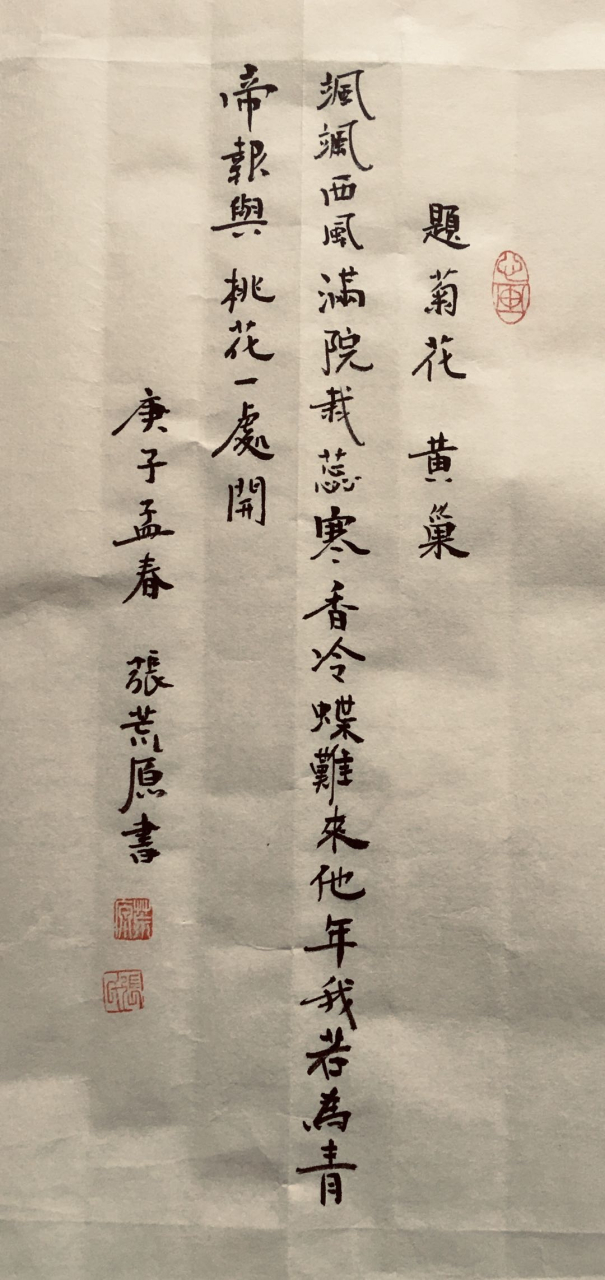 題菊花 黄巢
颯颯西風滿院栽蕊寒香冷蝶難來他年我若為青
帝報與桃花一處開
庚子孟春 張荒原書
荒原
張氏